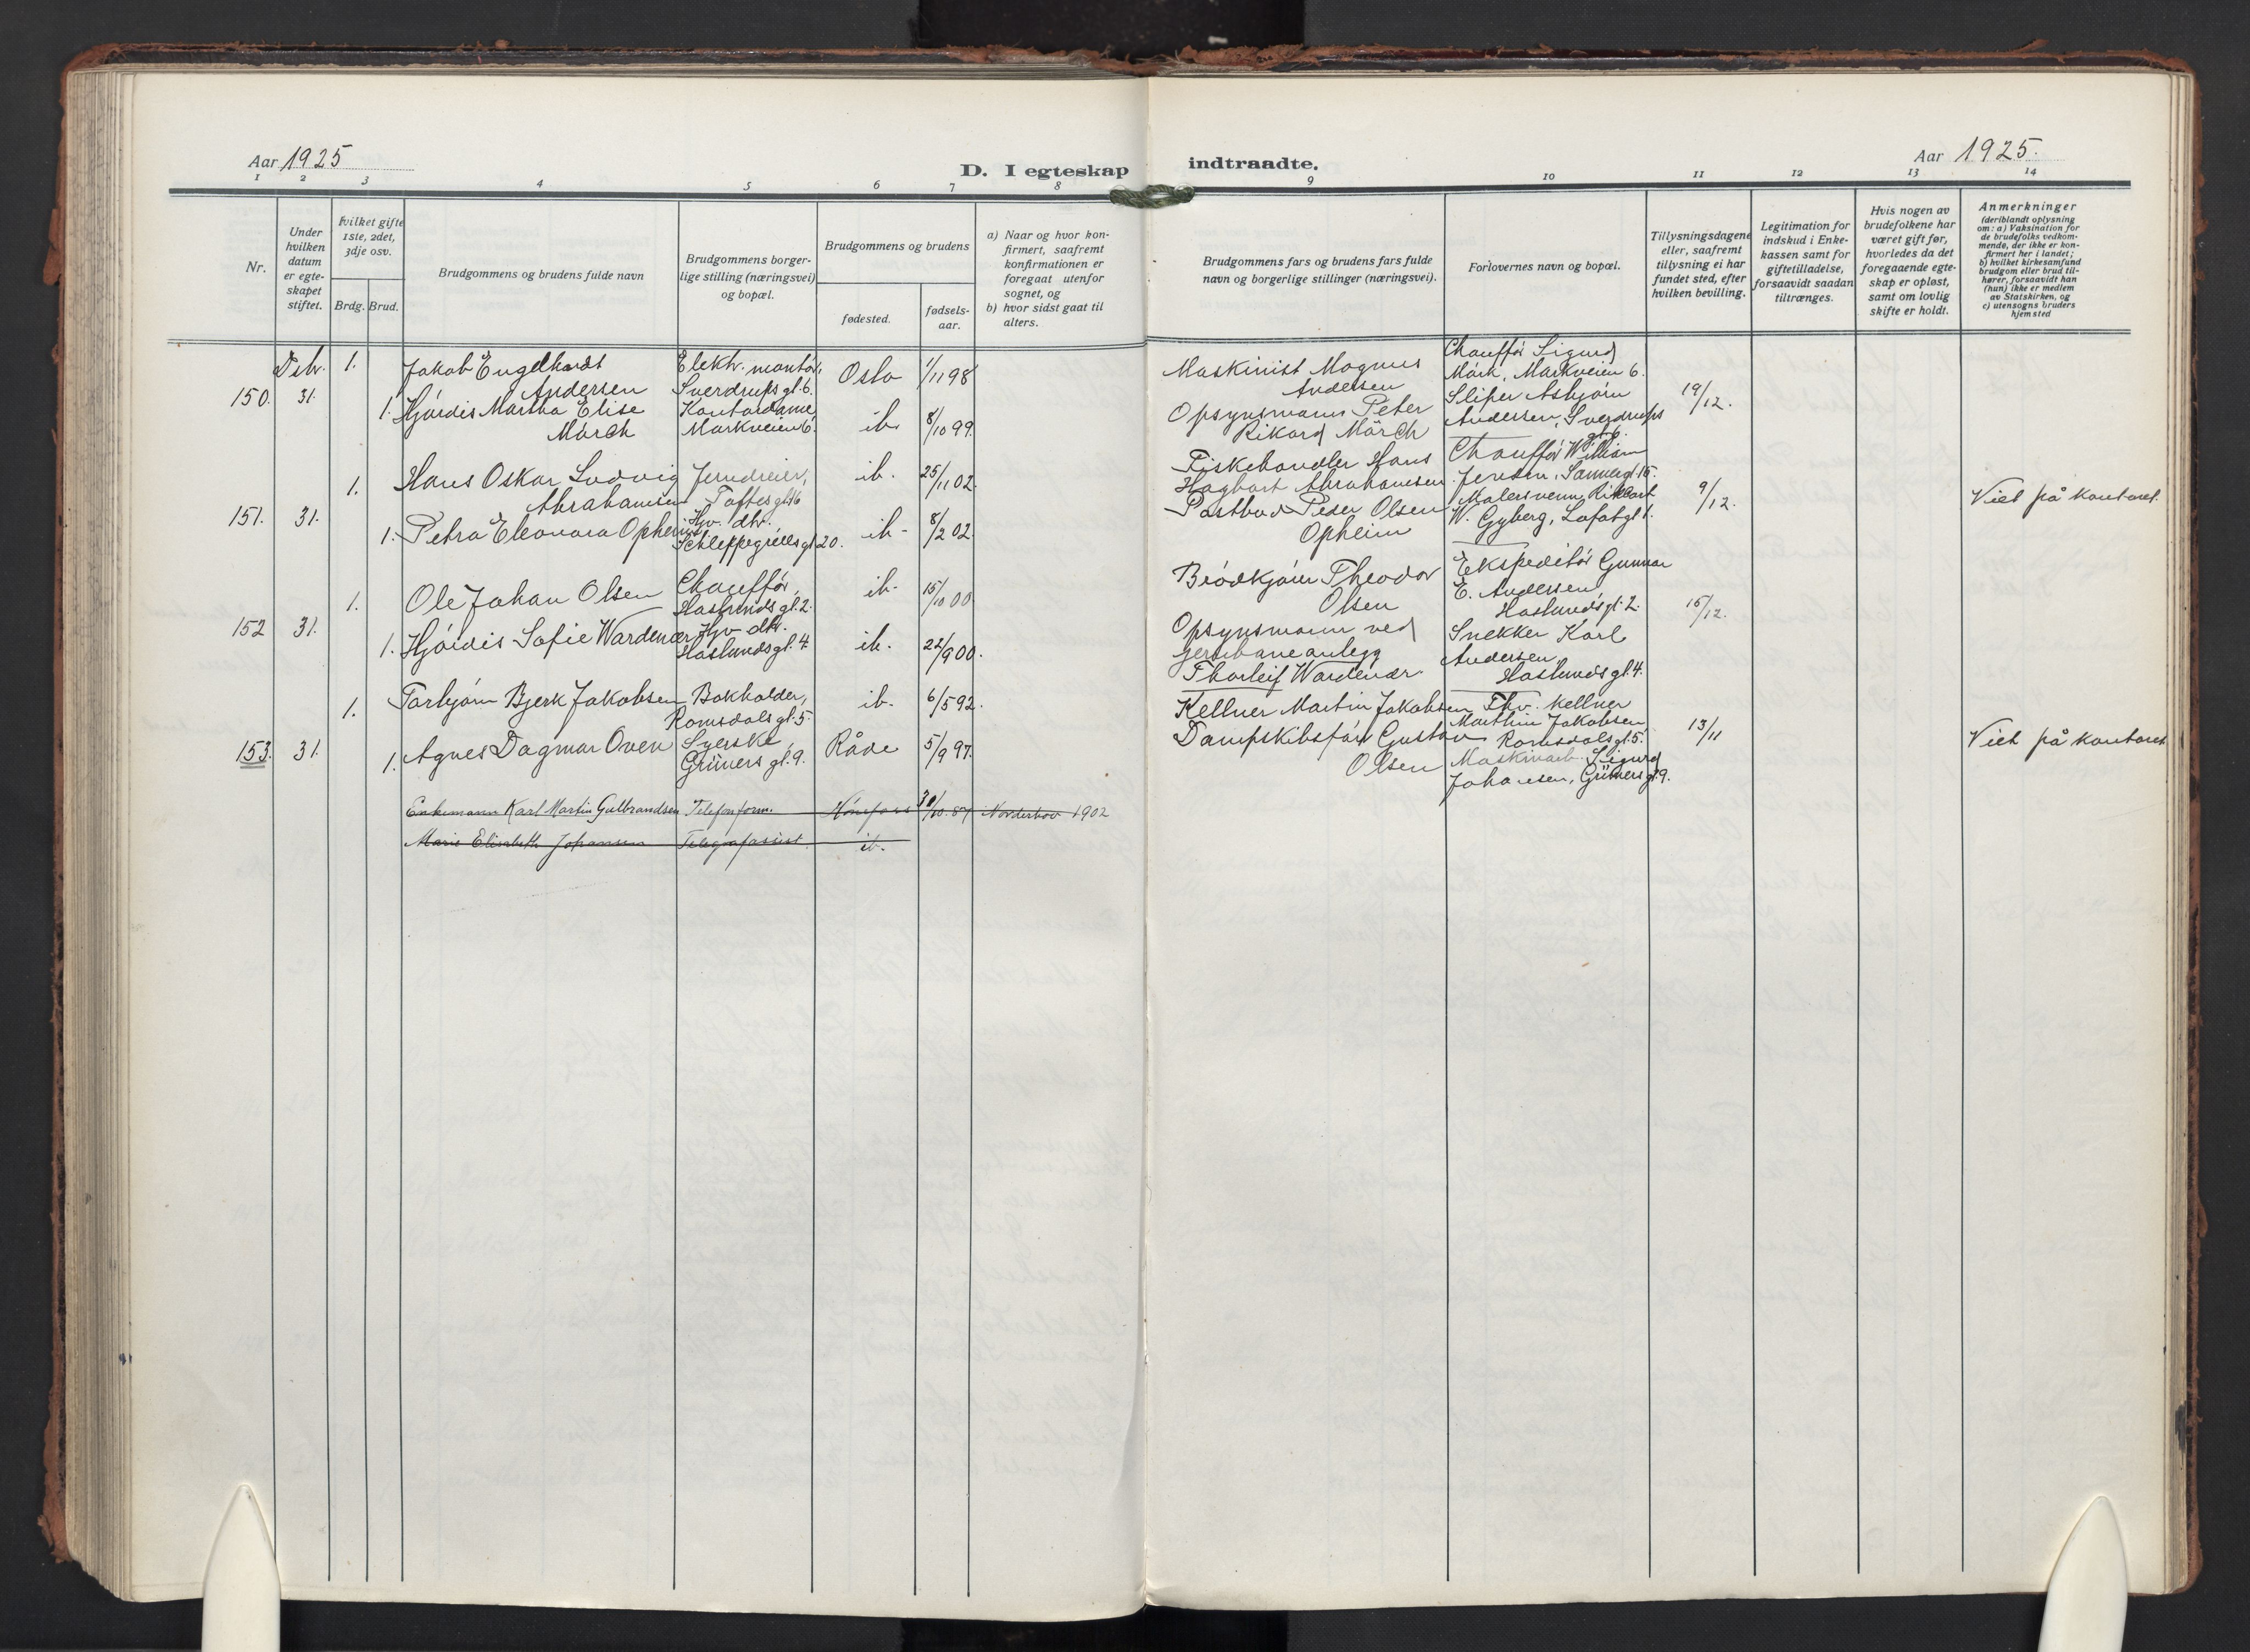 Aar 1925
D. I egteskap indtraadte.
Aar 1925.
1 2 3 4 5 6 7 8 9 10 11 12 13 14
Nr.
Under hvilken datum er egteskapet stiftet.
Hvilket gifte 1ste, 2det, 3dje osv.
Brdg. Brud.
Brudgommens og brudens fulde navn
Brudgommens borgerlige stilling (næringsvei) og bopæl.
Brudgommens og brudens
fødested.
fødselsaar.
a) Naar og hvor konfirmert, saafremt konfirmationen er foregaat utenfor sognet, og
b) hvor sidst gaat til alters.
Brudgommens fars og brudens fars fulde navn og borgerlige stillinger (næringsvei).
Forlovernes navn og bopæl.
Tillysningsdagene eller, saafremt tillysning ei har fundet sted, efter hvilken bevilling.
Legitimation for indskud i Enkekassen samt for giftetilladelse, forsaavidt saadan tiltrænges.
Hvis nogen av brudefolkene har været gift før, hvorledes da det foregaaende egteskap er opløst, samt om lovlig skifte er holdt.
Anmerkninger
(deriblandt oplysning om: a) Vaksination for de brudefolks vedkommende, der ikke er konfirmert her i landet; b) hvilket kirkesamfund brudgom eller brud tilhører, forsaavidt han (hun) ikke er medlem av Statskirken, og c) utensogns bruders hjemsted
Deb.
150. 31.
1. Jakob Engelhardt
Andersen
Elektr. montør,
Sverdrups gt. 6.
Oslo 1/11 98
Maskinist Magnus
Andersen
Chauffør Sigurd
Mörk, Markveien 6.
1. Hjördis Martha Elise
Mörch
Kontordame
Markveien 6.
ib. 8/10 99.
Opsynsmann Peter
Rikard Mörch
Sliper Asbjørn
Andersen, Sverdrups
gt. 6.
19/12.
151. 31.
1. Hans Oskar Ludvig
Abrahamsen
Jerndreier,
Toftes gt. 16
ib. 25/11 02.
Fiskehandler Hans
Hagbart Abrahamsen
Chauffør William
Jensen, Sannergt. 15.
1. Petra Eleonora Opheim
Hv. dtr.
Schleppegrells gt. 20.
ib. 8/2 02.
Postbud Peder Olsen
Opheim
Malersvenn Rikhart
W. Gyberg, Lofotgt. 1.
9/12.
Viet på kontoret.
152 31.
1. Ole Johan Olsen
Chauffør,
Haslunds gt. 2.
ib. 15/10 00.
Brödkjører Theodor
Olsen
Ekspeditør Gunnar
E. Andersen,
Haslunds gt. 2.
1. Hjördis Sofie Wardenær
Hjv. dtr.
Haslunds gt. 4
ib. 22/9 00.
Opsynsmann ved
jernbaneanlegg
Thorleif Wardenær
Snekker Karl
Andersen,
Haslunds gt. 4.
15/12.
153. 31.
1. Torbjørn Bjerk Jakobsen
Bokholder,
Romsdals gt. 5.
ib. 6/5 92.
Kellner Martin Jakobsen
Fhv. kellner
Marthin Jakobsen
Romsdals gt. 5.
1. Agnes Dagmar Oven
Syerske,
Grüners gt. 9.
Råde 5/9 97.
Dampskibsför. Gustav
Olsen
Maskinarb. Sigurd
Johansen, Grüners gt. 9.
13/11
Viet på kontoret
Enkemann Karl Martin Gulbrandsen Telefonform. Hönefoss 30/10. 87 Norderhov 1902
Marie Elisabeth Johansen Telegrafassist. ib.